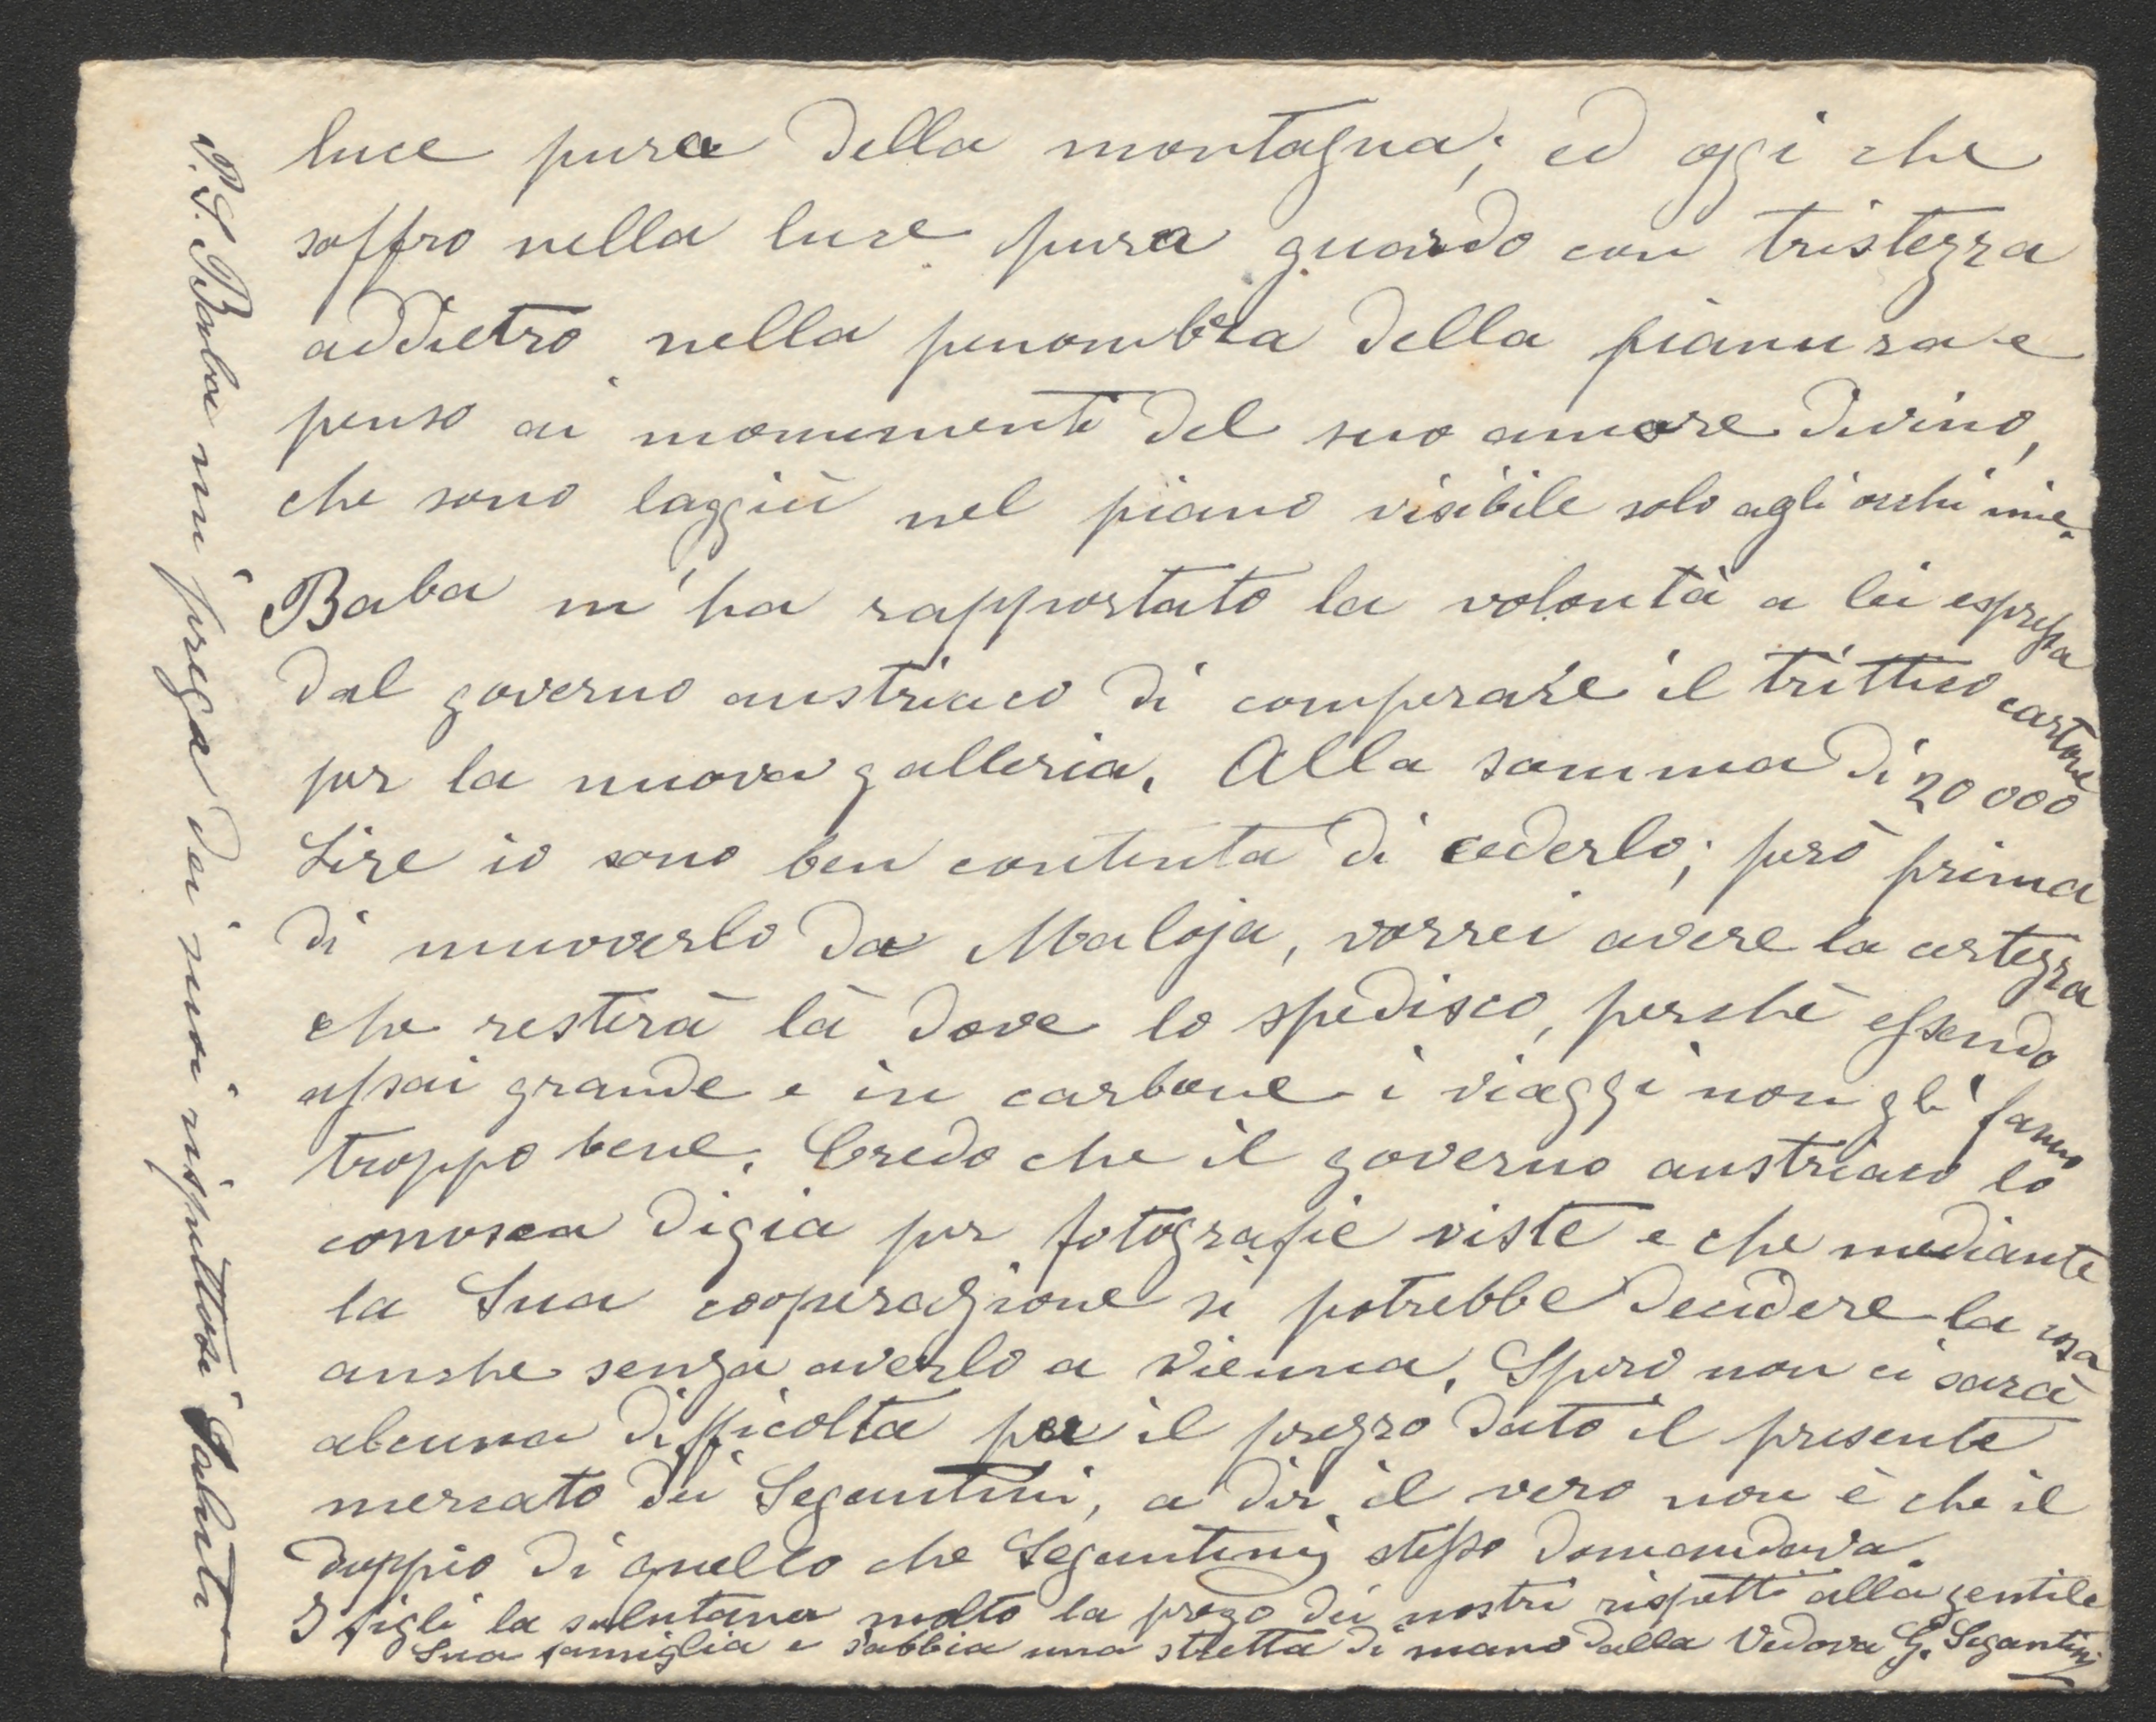 luce pura della montagna; ed oggi che
soffro nella luce pura guardo con tristezza
addietro nella penombra della pianura e
penso ai monumenti del suo amore divino,
che sono laggiù nel piano visibile solo agli occhi miei.
Baba m'ha rapportato la volontà a lei espressa
dal governo austriaco di comperare il trittico cartone
per la nuova galleria. Alla somma di 20 000
Lire io sono ben contenta di cederlo; però prima
di muoverlo da Maloja, vorrei avere la certezza
che resterà là dove lo spedisco, perchè essendo
assai grande e in carbone i viaggi non gli fanno
troppo bene. Credo che il governo austriaco lo
conosca digia per fotografie viste e che mediante
la Sua cooperazione si potrebbe decidere la cosa
anche senza averlo a Vienna. Spero non ci sarà
alcuna difficoltà per il prezzo dato il presente
mercato dei Segantini, a dir il vero non è che il
doppio di quello che Segantini stesso domandava.
I figli la salutano molto la prego dei nostri rispetti alla gentile
Sua famiglia e s'abbia una stretta di mano dalla Vedova G. Segantini
P.S. Baba mi prega dei suoi rispettosi Saluti